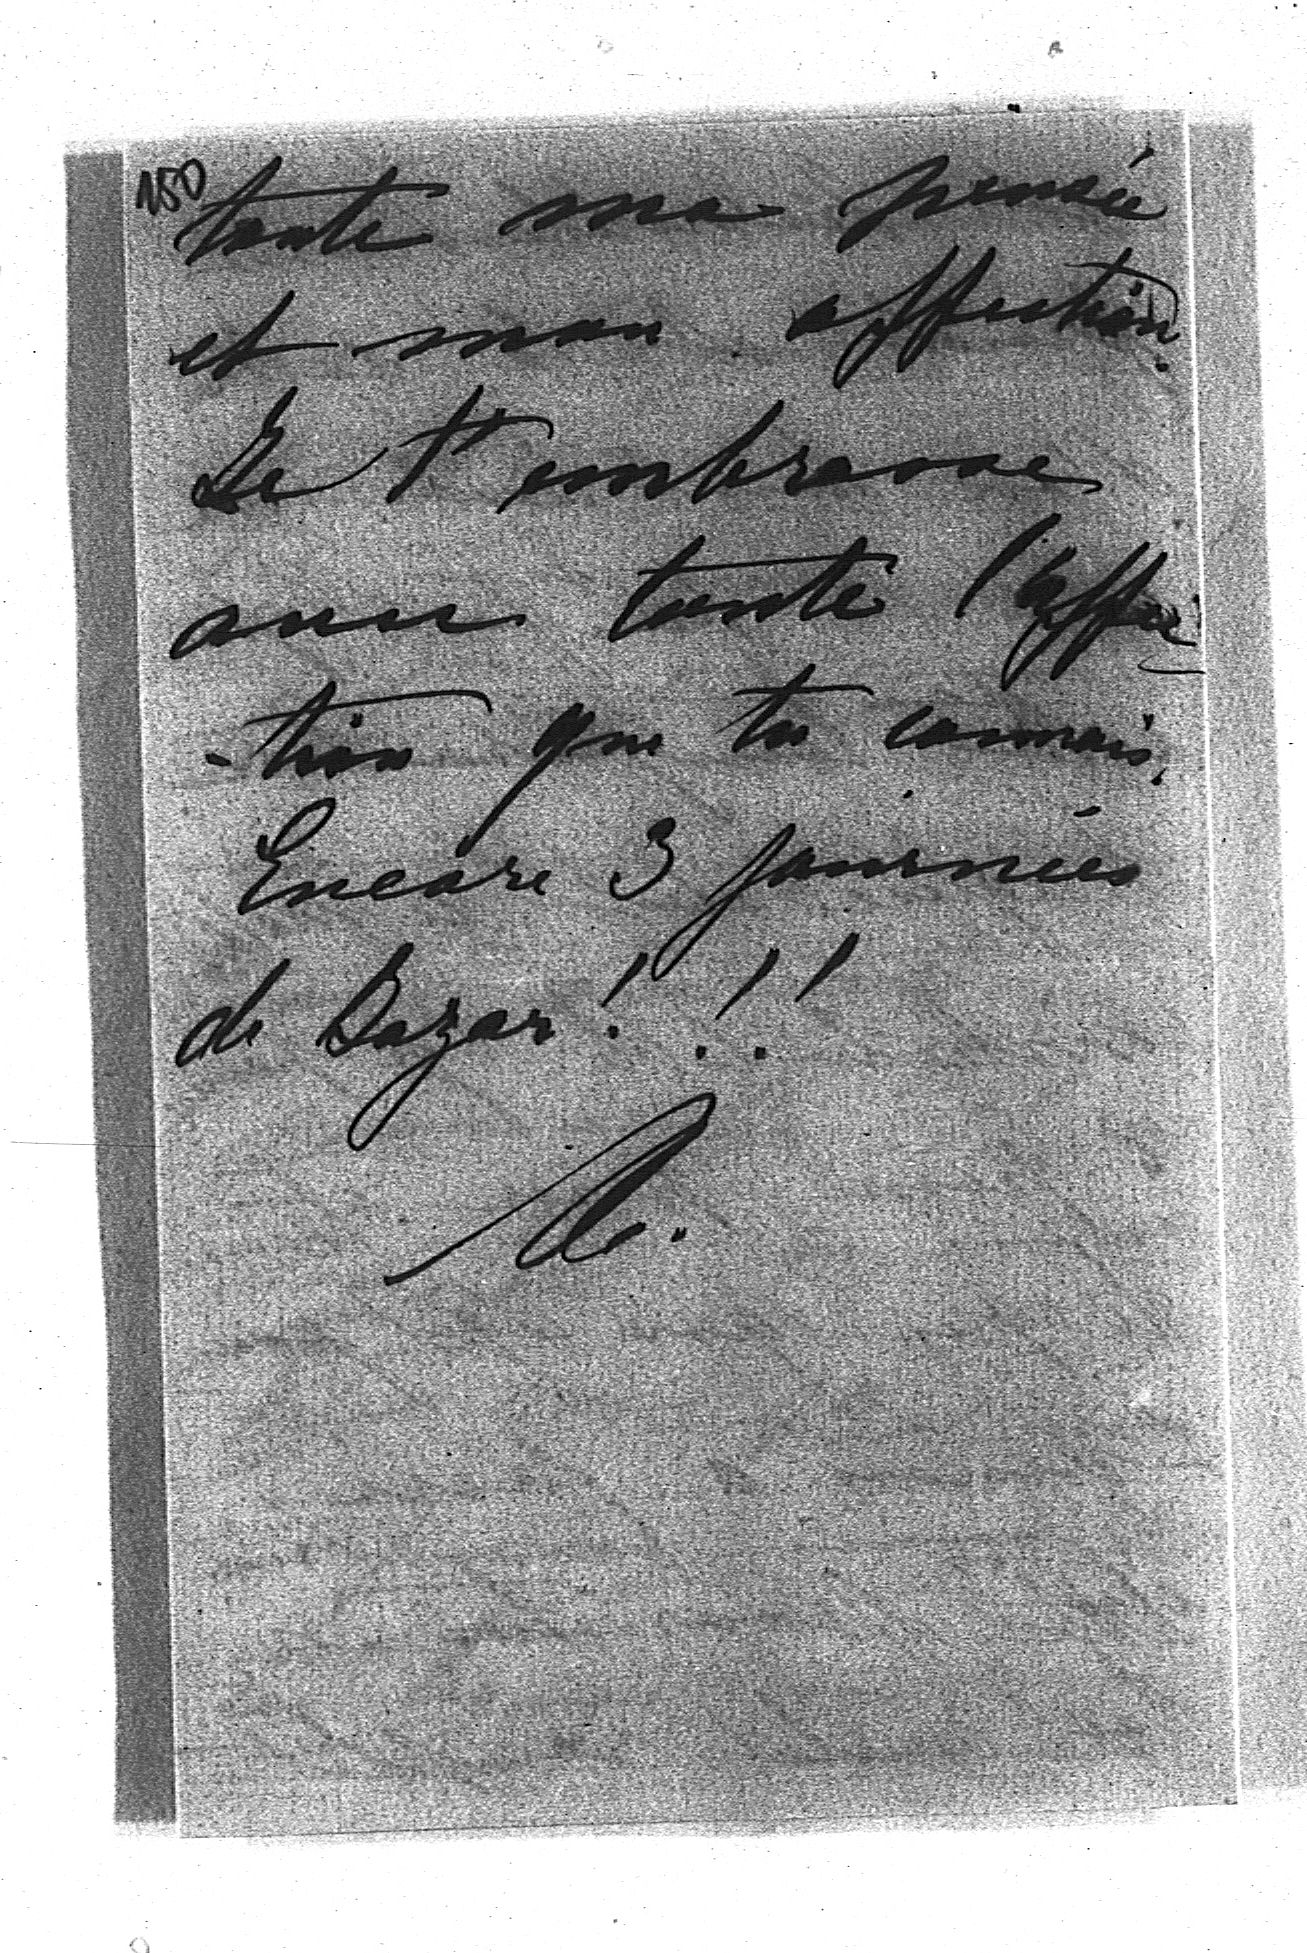 150
toute ma pensée
et mon affection.
Je t'embrasse
avec toute l'affec-
-tion que tu connais.
Encore 3 journées
de Bazar!!!